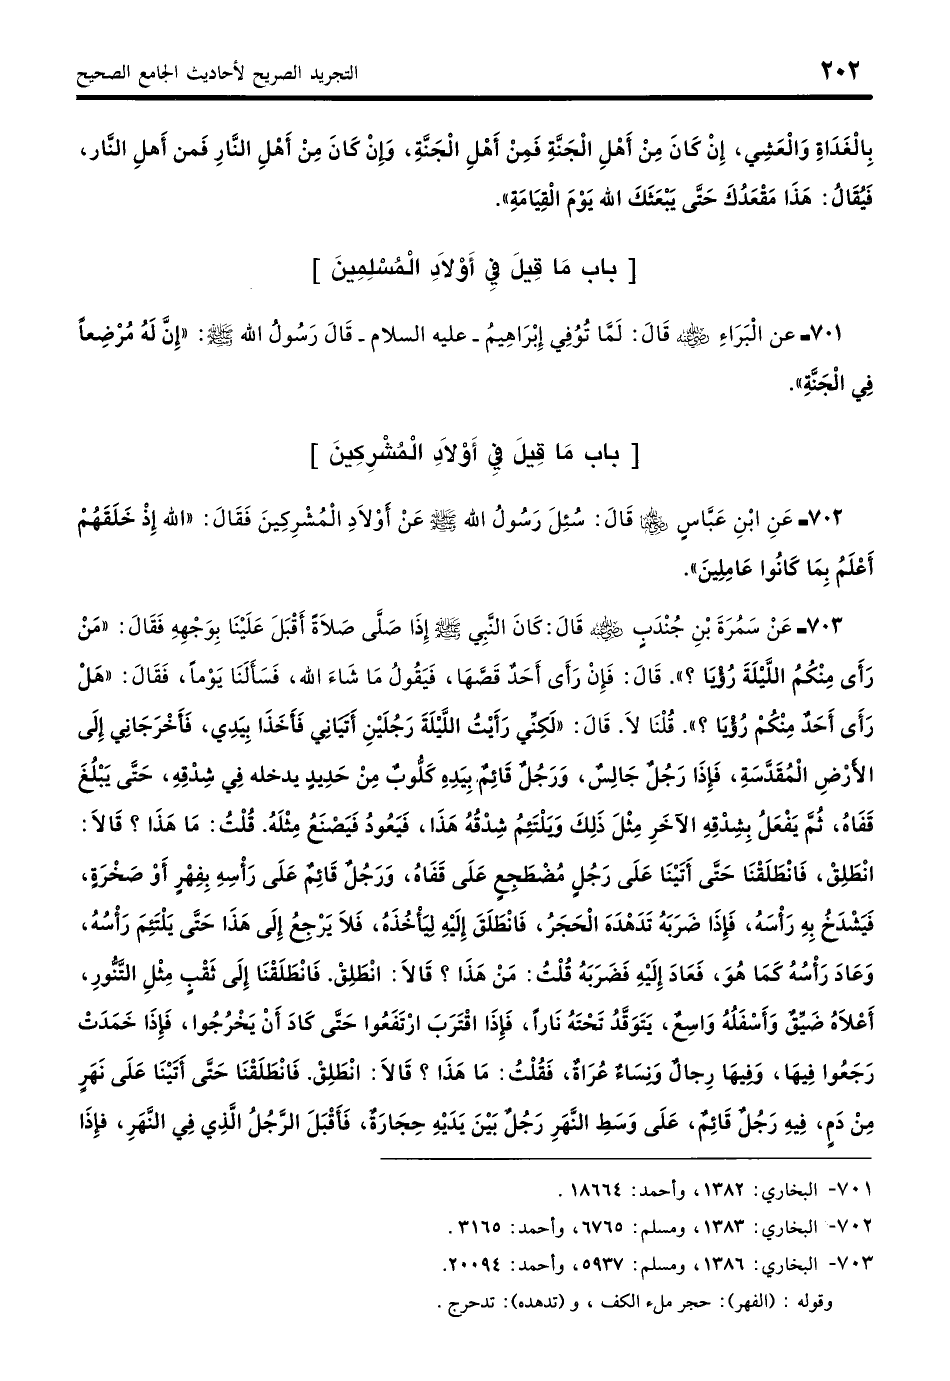 ٢٠٢ التجريد الصريح لأحاديث الجامع الصحيح
بِالْغَدَاةِ وَالْعَشِي، إِنْ كَانَ مِنْ أَهْلِ الْجَنَّةِ فَمِنْ أَهْلِ الْجَنَّةِ، وَإِنْ كَانَ مِنْ أَهْلِ النَّارِ فَمن أهلِ النَّار،
فَيُقَالُ: هَذَا مَقْعَدُكَ حَتَّى يَبْعَثَكَ الله يَوْمَ الْقِيَامَةِ».
[ باب مَا قِيلَ فِي أَوْلَادِ الْمُسْلِمِينَ ]
٧٠١ـ عن الْبَرَاءِ رضي الله عنه قَالَ: لَمَّا تُوُفِي إِبْرَاهِيمُ ـ عليه السلام ـ قَالَ رَسُولُ الله ﷺ: «إِنَّ لَهُ مُرْضِعاً
فِي الْجَنَّةِ».
[ باب مَا قِيلَ فِي أَوْلَادِ الْمُشْرِكِينَ ]
٧٠٢ـ عَنِ ابْنِ عَبَّاسٍ رضي الله عنهما قَالَ: سُئِلَ رَسُولُ الله ﷺ عَنْ أَوْلَادِ الْمُشْرِكِينَ فَقَالَ: «الله إِذْ خَلَقَهُمْ
أَعْلَمُ بِمَا كَانُوا عَامِلِينَ».
٧٠٣ـ عَنْ سَمُرَةَ بْنِ جُنْدَبٍ رضي الله عنه قَالَ: كَانَ النَّبِي ﷺ إِذَا صَلَّى صَلاَةً أَقْبَلَ عَلَيْنَا بِوَجْهِهِ فَقَالَ: «مَنْ
رَأَى مِنْكُمُ اللَّيْلَةَ رُؤْيَا ؟». قَالَ: فَإِنْ رَأَى أَحَدٌ قَصَّهَا، فَيَقُولُ مَا شَاءَ الله، فَسَأَلَنَا يَوْماً، فَقَالَ: «هَلْ
رَأَى أَحَدٌ مِنْكُمْ رُؤْيَا ؟». قُلْنَا لاَ. قَالَ: «لَكِنِّي رَأَيْتُ اللَّيْلَةَ رَجُلَيْنِ أَتَيَانِي فَأَخَذَا بِيَدِي، فَأَخْرَجَانِي إِلَى
الأَرْضِ الْمُقَدَّسَةِ، فَإِذَا رَجُلٌ جَالِسٌ، وَرَجُلٌ قَائِمٌ بِيَدِهِ كَلُّوبٌ مِنْ حَدِيدٍ يدخله فِي شِدْقِهِ، حَتَّى يَبْلُغَ
قَفَاهُ، ثُمَّ يَفْعَلُ بِشِدْقِهِ الآخَرِ مِثْلَ ذَلِكَ وَيَلْتَئِمُ شِدْقُهُ هَذَا، فَيَعُودُ فَيَصْنَعُ مِثْلَهُ. قُلْتُ: مَا هَذَا ؟ قَالاَ:
انْطَلِقْ، فَانْطَلَقْنَا حَتَّى أَتَيْنَا عَلَى رَجُلٍ مُضْطَجِعٍ عَلَى قَفَاهُ، وَرَجُلٌ قَائِمٌ عَلَى رَأْسِهِ بِفِهْرٍ أَوْ صَخْرَةٍ،
فَيَشْدَخُ بِهِ رَأْسَهُ، فَإِذَا ضَرَبَهُ تَدَهْدَهَ الْحَجَرُ، فَانْطَلَقَ إِلَيْهِ لِيَأْخُذَهُ، فَلاَ يَرْجِعُ إِلَى هَذَا حَتَّى يَلْتَئِمَ رَأْسُهُ،
وَعَادَ رَأْسُهُ كَمَا هُوَ، فَعَادَ إِلَيْهِ فَضَرَبَهُ قُلْتُ: مَنْ هَذَا ؟ قَالاَ: انْطَلِقْ. فَانْطَلَقْنَا إِلَى ثَقْبٍ مِثْلِ التَّنُّورِ،
أَعْلاَهُ ضَيِّقٌ وَأَسْفَلُهُ وَاسِعٌ، يَتَوَقَّدُ تَحْتَهُ نَاراً، فَإِذَا اقْتَرَبَ ارْتَفَعُوا حَتَّى كَادَ أَنْ يَخْرُجُوا، فَإِذَا خَمَدَتْ
رَجَعُوا فِيهَا، وَفِيهَا رِجالٌ وَنِسَاءٌ عُرَاةٌ، فَقُلْتُ: مَا هَذَا ؟ قَالاَ: انْطَلِقْ. فَانْطَلَقْنَا حَتَّى أَتَيْنَا عَلَى نَهَرٍ
مِنْ دَمٍ، فِيهِ رَجُلٌ قَائِمٌ، عَلَى وَسَطِ النَّهَرِ رَجُلٌ بَيْنَ يَدَيْهِ حِجَارَةٌ، فَأَقْبَلَ الرَّجُلُ الَّذِي فِي النَّهَرِ، فَإِذَا
٧٠١- البخاري: ١٣٨٢، وأحمد: ١٨٦٦٤ .
٧٠٢- البخاري: ١٣٨٣، ومسلم: ٦٧٦٥، وأحمد: ٣١٦٥ .
٧٠٣- البخاري: ١٣٨٦، ومسلم: ٥٩٣٧، وأحمد: ٢٠٠٩٤.
وقوله : (الفهر): حجر ملء الكف ، و (تدهده): تدحرج .